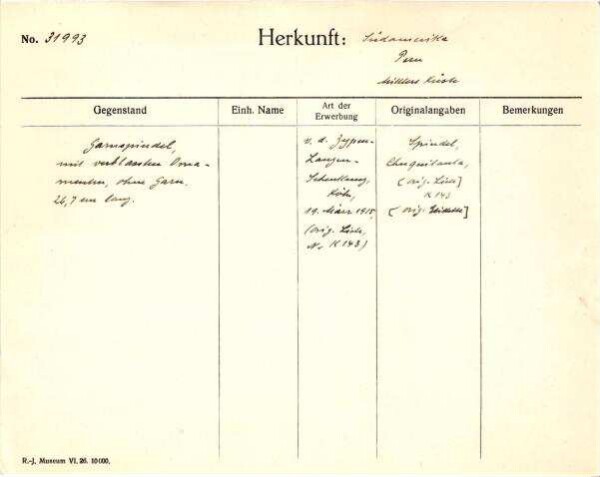 No. 31993
Herkunft: Südamerika
Peru
Mittlere Küste
Gegenstand
Einh. Name
Art der Erwerbung
Originalangaben
Bemerkungen
Garnspindel,
mit verblassten Orna-
menten, ohne Garn.
26,7 cm lang.
v. d. Zypen-
Langen-
Schenkung,
Köln,
19. März 1915,
(orig. Liste,
No K 143)
Spindel,
Chuquitanta,
(orig. Liste]
K 143
(orig.
R.-J. Museum VI. 26. 10000.